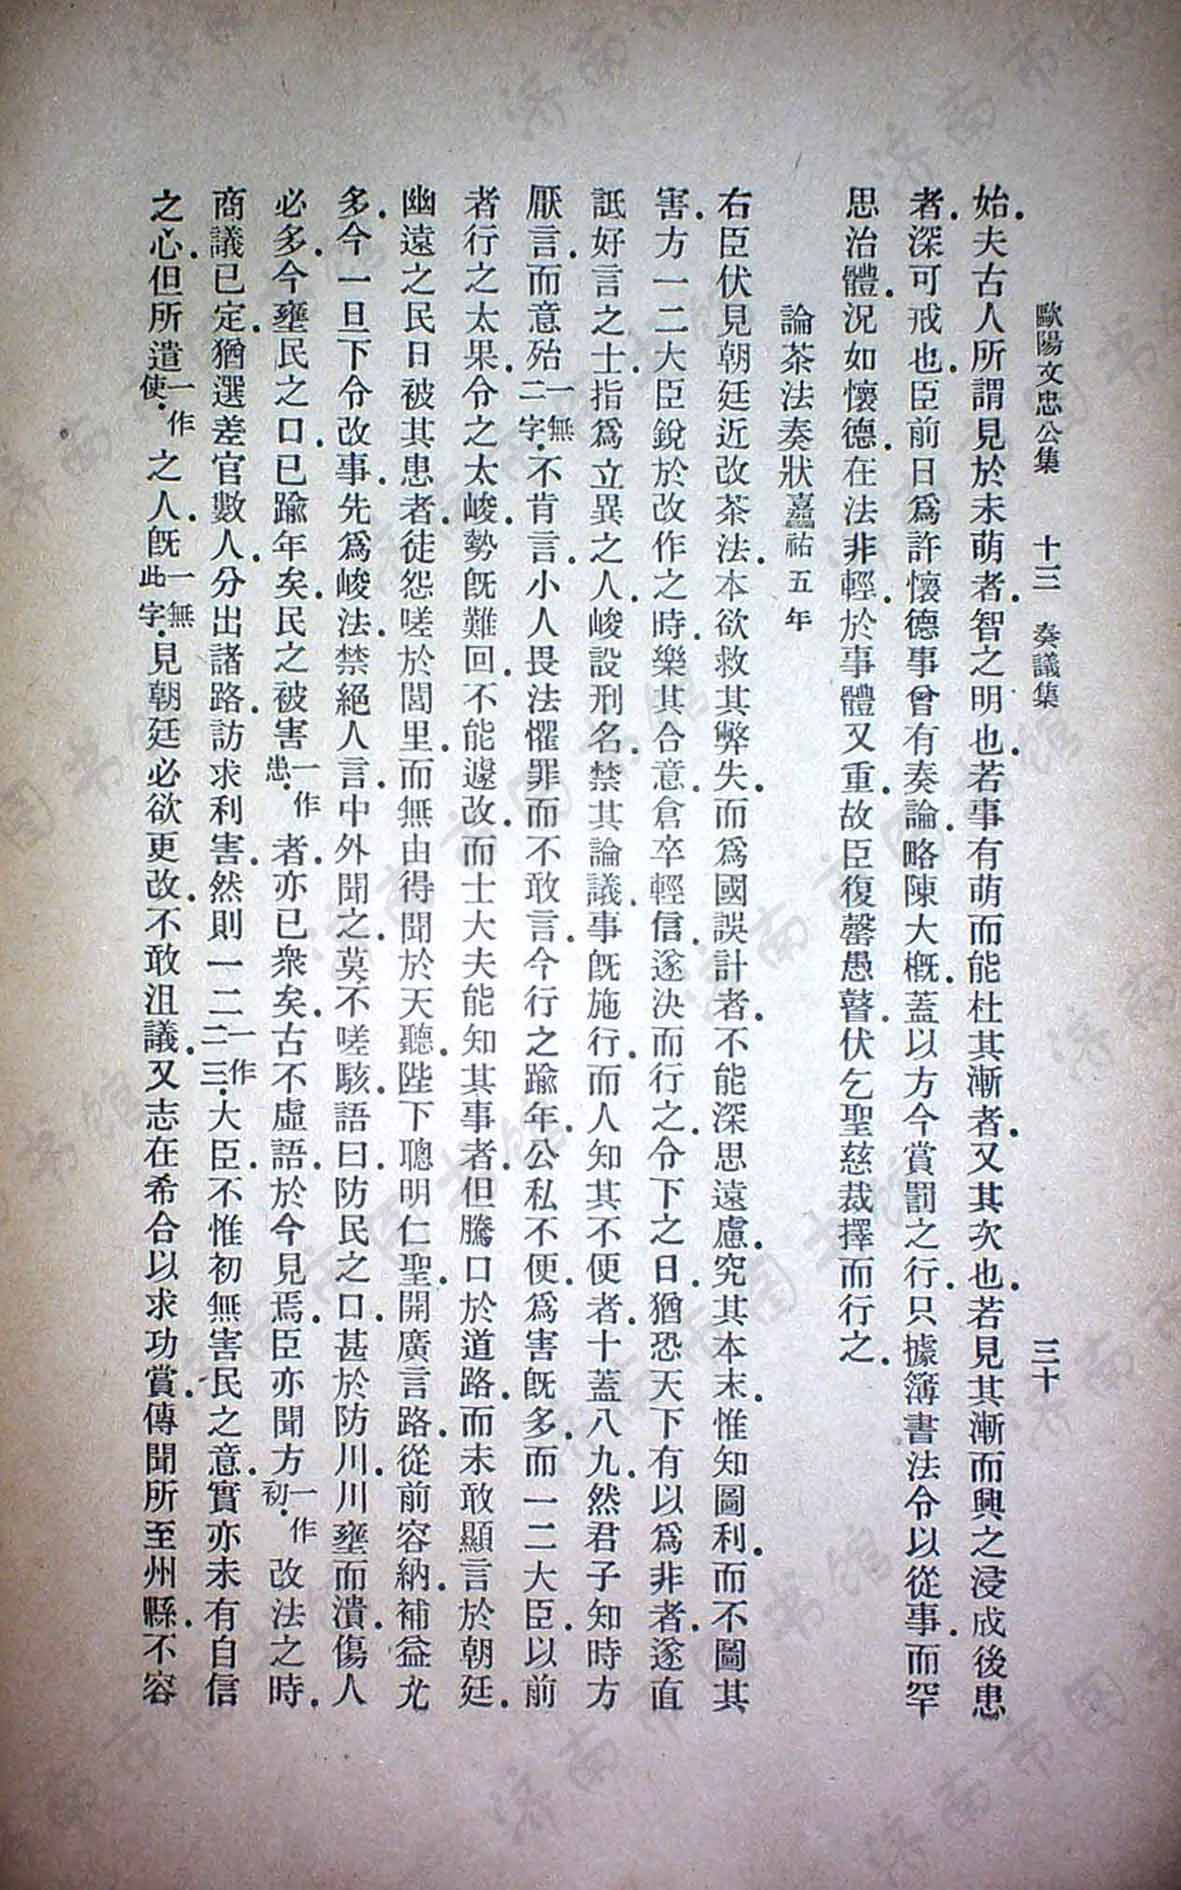 歐陽文忠公集　十三　奏議集　三十
始。夫古人所謂見於未萌者。智之明也。若事有萌而能杜其漸者。又其次也。若見其漸而興之浸成後患
者。深可戒也。臣前日爲許懷德事曾有奏論。略陳大概。蓋以方今賞罰之行。只據簿書法令以從事。而罕
思治體。況如懷德。在法非輕。於事體又重。故臣復罄愚瞽。伏乞聖慈裁擇而行之。
論茶法奏狀嘉祐五年
右臣伏見朝廷近改茶法。本欲救其弊失。而爲國誤計者。不能深思遠慮。究其本末。惟知圖利。而不圖其
害。方一二大臣銳於改作之時。樂其合意。倉卒輕信。遂決而行之。令下之日。猶恐天下有以爲非者。遂直
詆好言之士。指爲立異之人。峻設刑名。禁其論議。事旣施行。而人知其不便者。十蓋八九。然君子知時方
厭言。而意殆一無二字。不肯言。小人畏法懼罪而不敢言。今行之踰年。公私不便。爲害旣多。而一二大臣。以前
者行之太果。令之太峻。勢旣難回。不能遽改。而士大夫能知其事者。但騰口於道路。而未敢顯言於朝廷。
幽遠之民日被其患者。徒怨嗟於閭里。而無由得聞於天聽。陛下聰明仁聖。開廣言路。從前容納。補益尤
多。今一旦下令改事。先爲峻法。禁絕人言。中外聞之。莫不嗟駭。語曰。防民之口。甚於防川。川壅而潰。傷人
必多。今壅民之口。已踰年矣。民之被害一作患。者。亦已衆矣。古不虛語。於今見焉。臣亦聞方一作初。改法之時。
商議已定。猶選差官數人。分出諸路。訪求利害。然則一二一作二三。大臣。不惟初無害民之意。實亦未有自信
之心。但所遣一作使。之人。旣一無此字。見朝廷必欲更改。不敢沮議。又志在希合以求功賞。傳聞所至州縣。不容